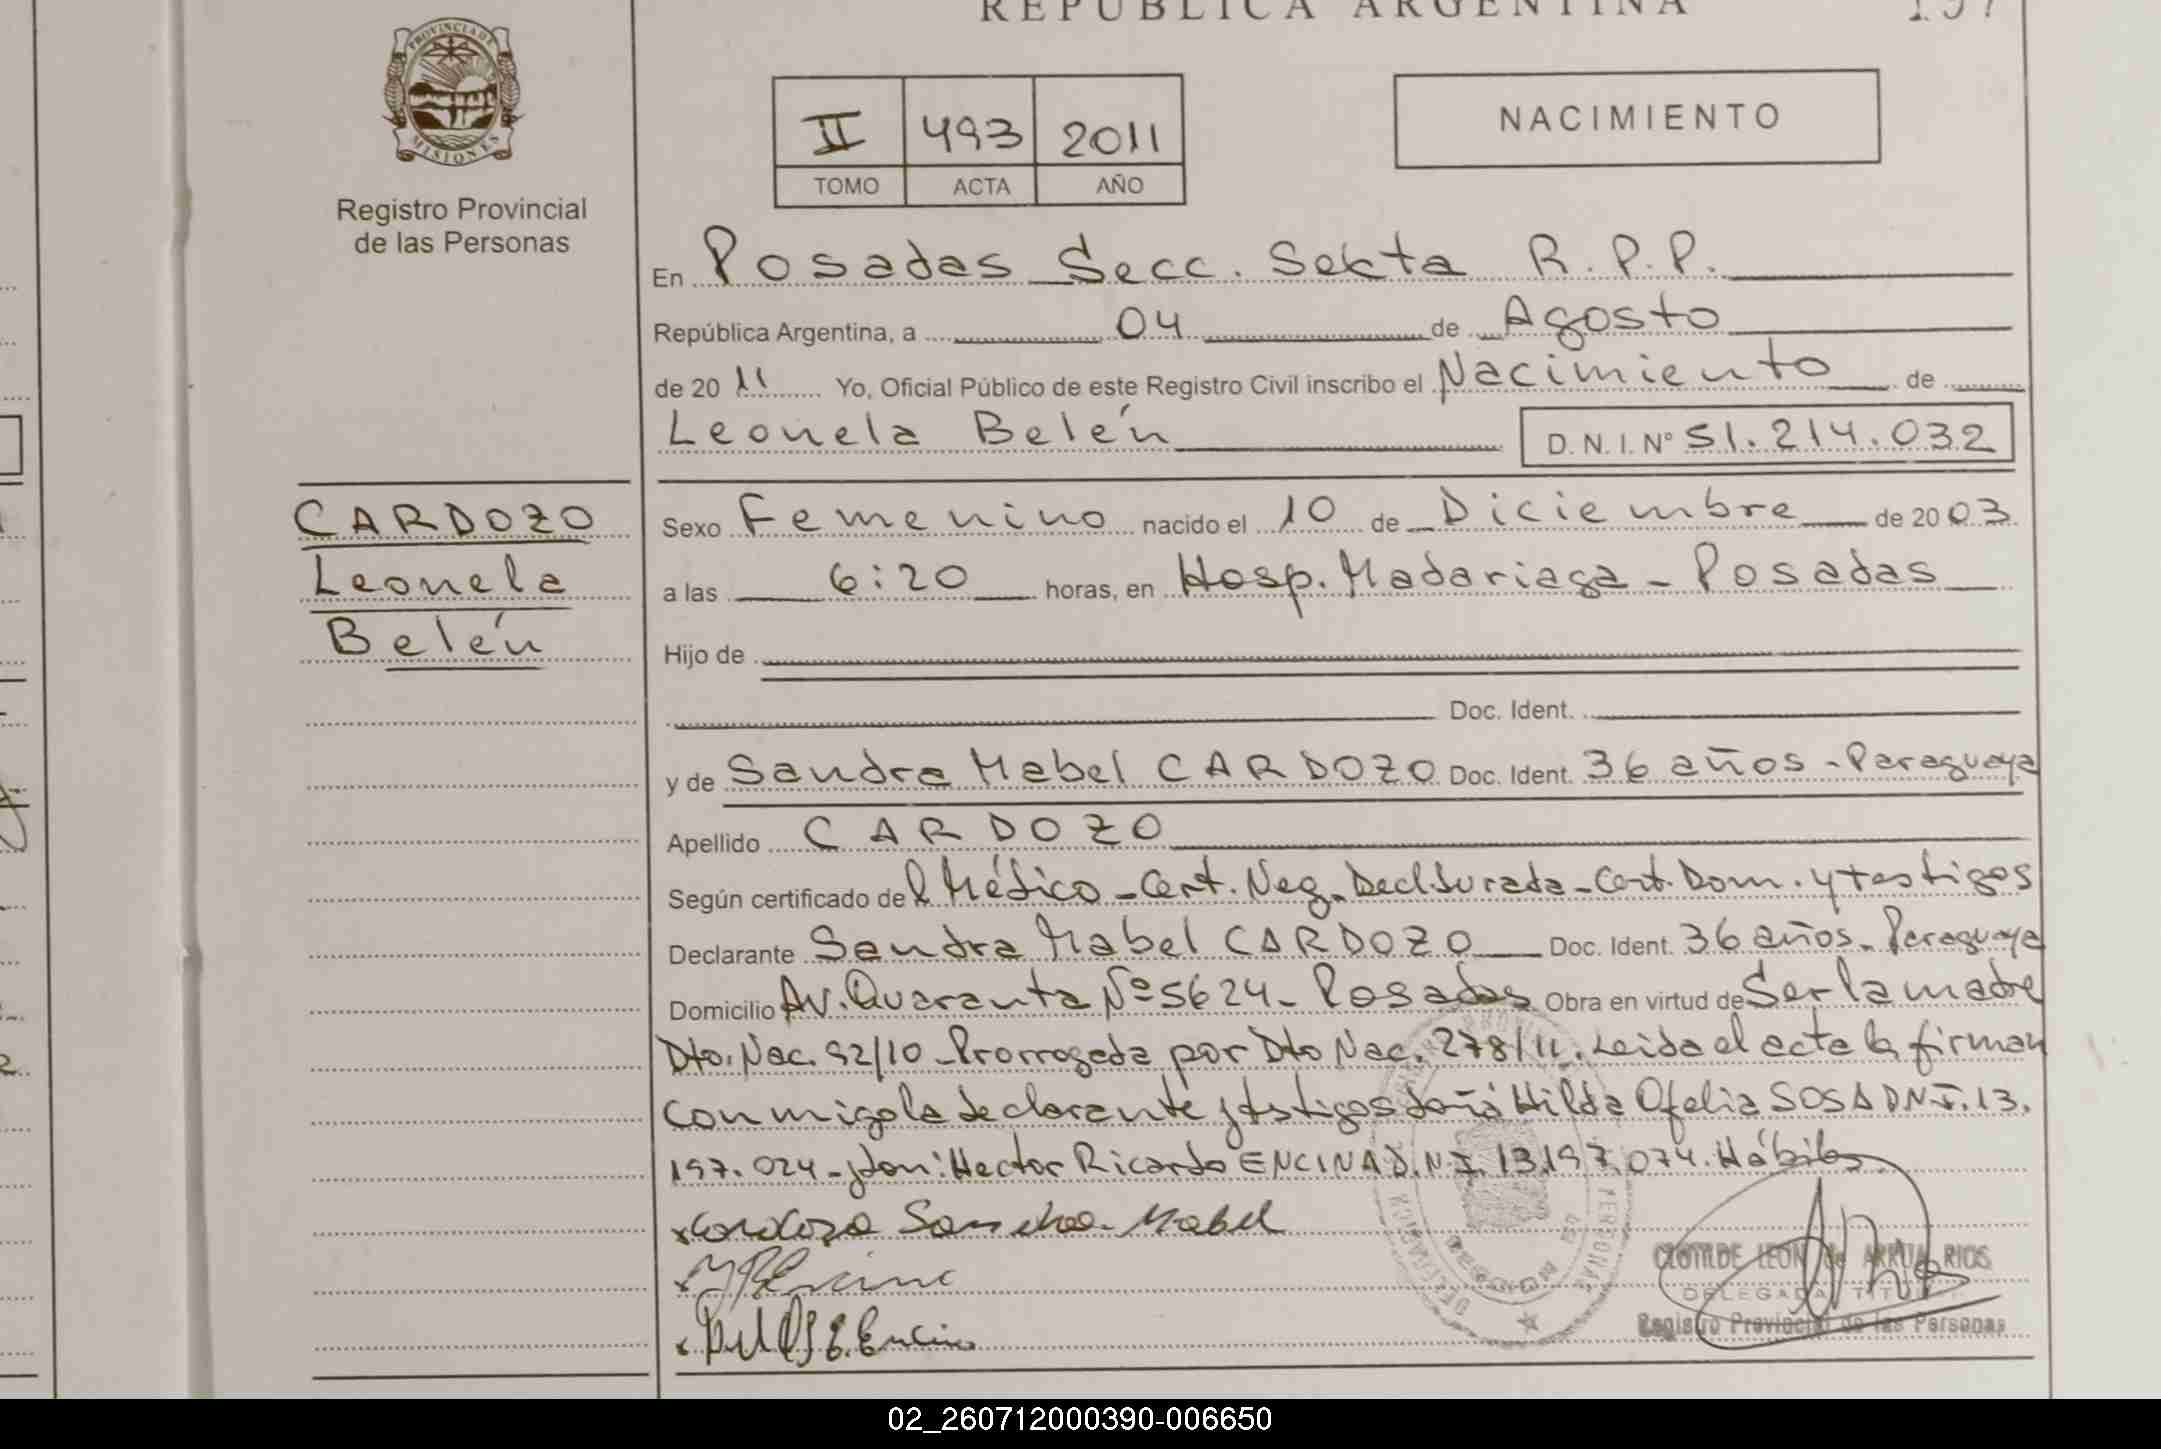 REPUBLICA ARGENTINA
PROVINCIA DE
MISIONES
Registro Provincial
de las Personas
II 493 2011
TOMO ACTA AÑO
NACIMIENTO
En Posadas Secc. Sexta R.P.P.
República Argentina, a 04 de Agosto
de 2011 Yo, Oficial Público de este Registro Civil inscribo el Nacimiento de
Leonela Belén D.N.I. Nº 51.214.032
CARDOZO
Leonela
Belén
Sexo Femenino nacido el 10 de Diciembre de 2003
a las 6:20 horas, en Hosp. Madariaga - Posadas
Hijo de
Doc. Ident.
y de Sandra Mabel CARDOZO Doc. Ident. 36 años - Paraguaya
Apellido CARDOZO
Según certificado del Médico - Cert. Neg. Decl. Jurada - Cert. Dom. y testigos
Declarante Sandra Mabel CARDOZO Doc. Ident. 36 años - Paraguaya
Domicilio Av. Quaranta Nº 5624 - Posadas Obra en virtud de Ser la madre
Dto. Nac. 92/10 - Prorrogada por Dto Nac. 278/11. Leida el acta la firman
conmigo la declarante y testigos doña Hilda Ofelia SOSA D.N.I. 13.
197.024 - y don: Hector Ricardo ENCINA D.N.I. 13.197.074. Hábiles
Cardozo Sandra Mabel
CLOTILDE LEON de ARRUA RIOS
DELEGADA TITULAR
Registro Provincial de las Personas
02_260712000390-006650